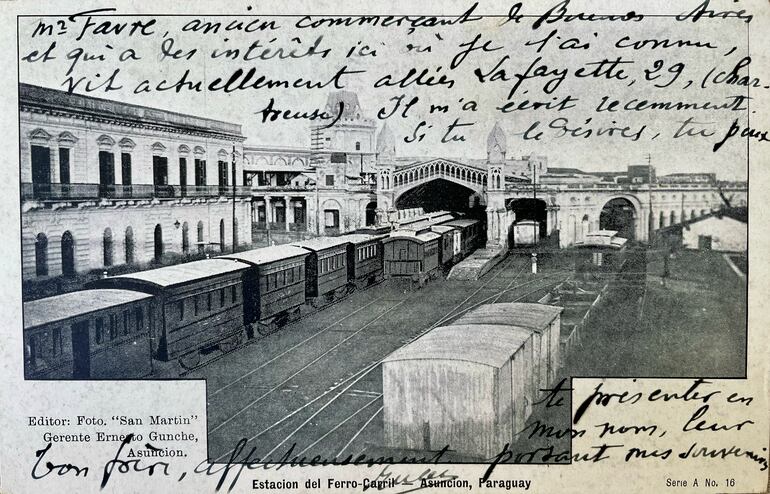 Mr Favre, ancien commerçant de Buenos Aires
et qui a des intérêts ici où je l'ai connu,
vit actuellement allées Lafayette, 29, (Char-
treuse) Il m'a écrit recemment
Si tu le désires, tu peux
te présenter en
mon nom, leur
portant mes souvenirs
Ton frère, affectueusement
Jules
Editor: Foto. "San Martin"
Gerente Ernesto Gunche,
Asuncion.
Estacion del Ferro-Carril Asuncion, Paraguay
Serie A No. 16